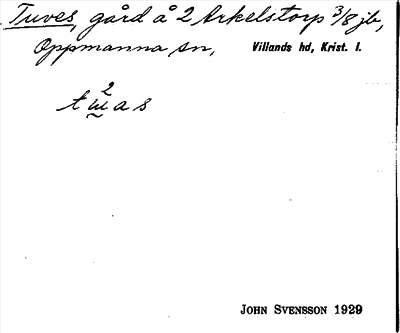 Tuves, gård å 2 Arkelstorp 3/8 jb,
Oppmanna sn, Villands hd, Krist. l.
2
t w a s
JOHN SVENSSON 1929